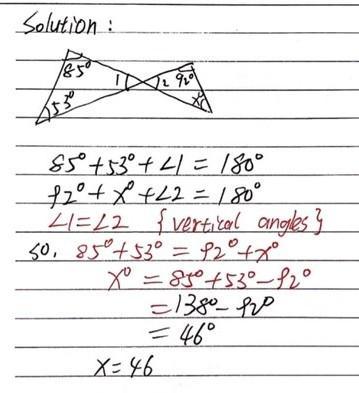 Solution :
85° 1 2 92°
53° x°
85° + 53° + ∠1 = 180°
92° + x° + ∠2 = 180°
∠1 = ∠2 {vertical angles}
so. 85° + 53° = 92° + x°
x° = 85° + 53° - 92°
= 138° - 92°
= 46°
x = 46